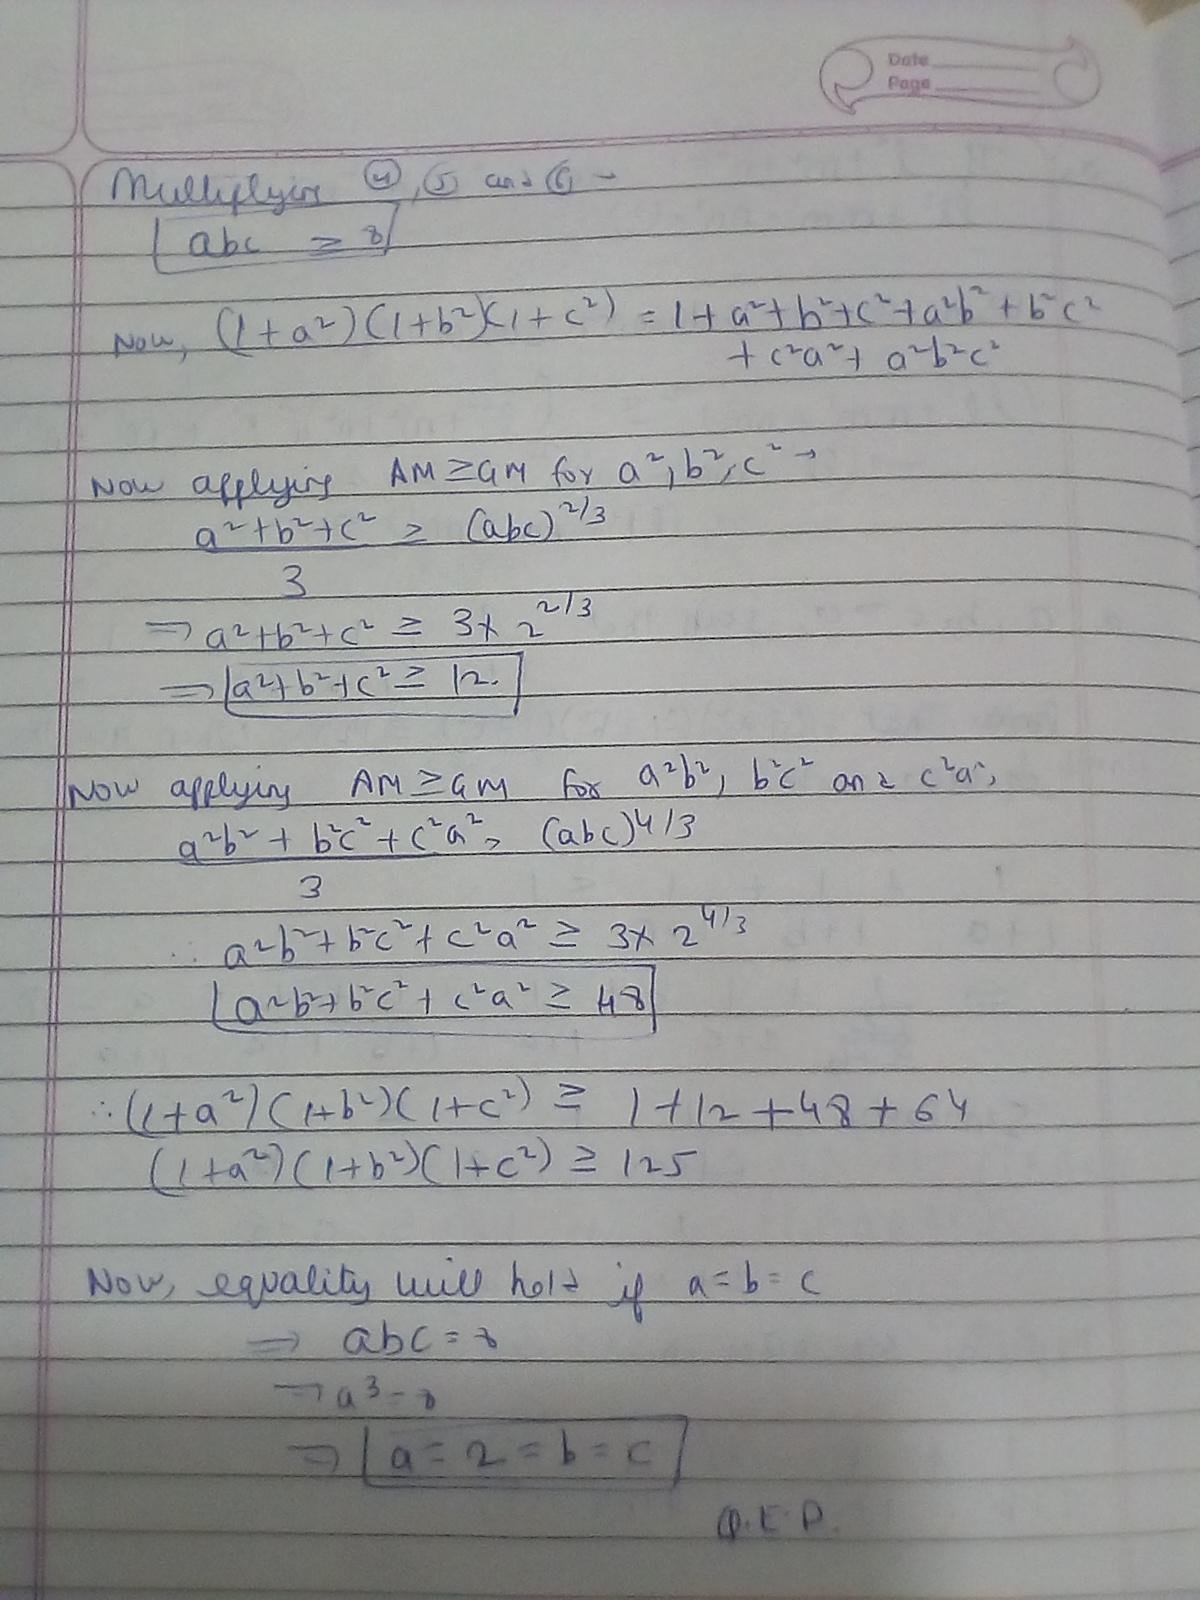 Date
Page
Multiplying ④, ⑤ and ⑥ →
abc ≥ 8
Now, (1+a²)(1+b²)(1+c²) = 1+a²+b²+c²+a²b²+b²c²
+ c²a²+ a²b²c²
Now applying AM≥GM for a², b², c² →
a²+b²+c² ≥ (abc)^2/3
3
⇒ a²+b²+c² ≥ 3×2^2/3
⇒ a²+b²+c² ≥ 12.
Now applying AM≥GM for a²b², b²c² and c²a²,
a²b² + b²c² + c²a² ≥ (abc)^4/3
3
∴ a²b²+b²c²+c²a² ≥ 3×2^4/3
a²b²+b²c²+c²a² ≥ 48
∴ (1+a²)(1+b²)(1+c²) ≥ 1+12+48+64
(1+a²)(1+b²)(1+c²) ≥ 125
Now, equality will hold if a=b=c
⇒ abc = 8
⇒ a³ = 8
⇒ a = 2 = b = c
Q.E.D.